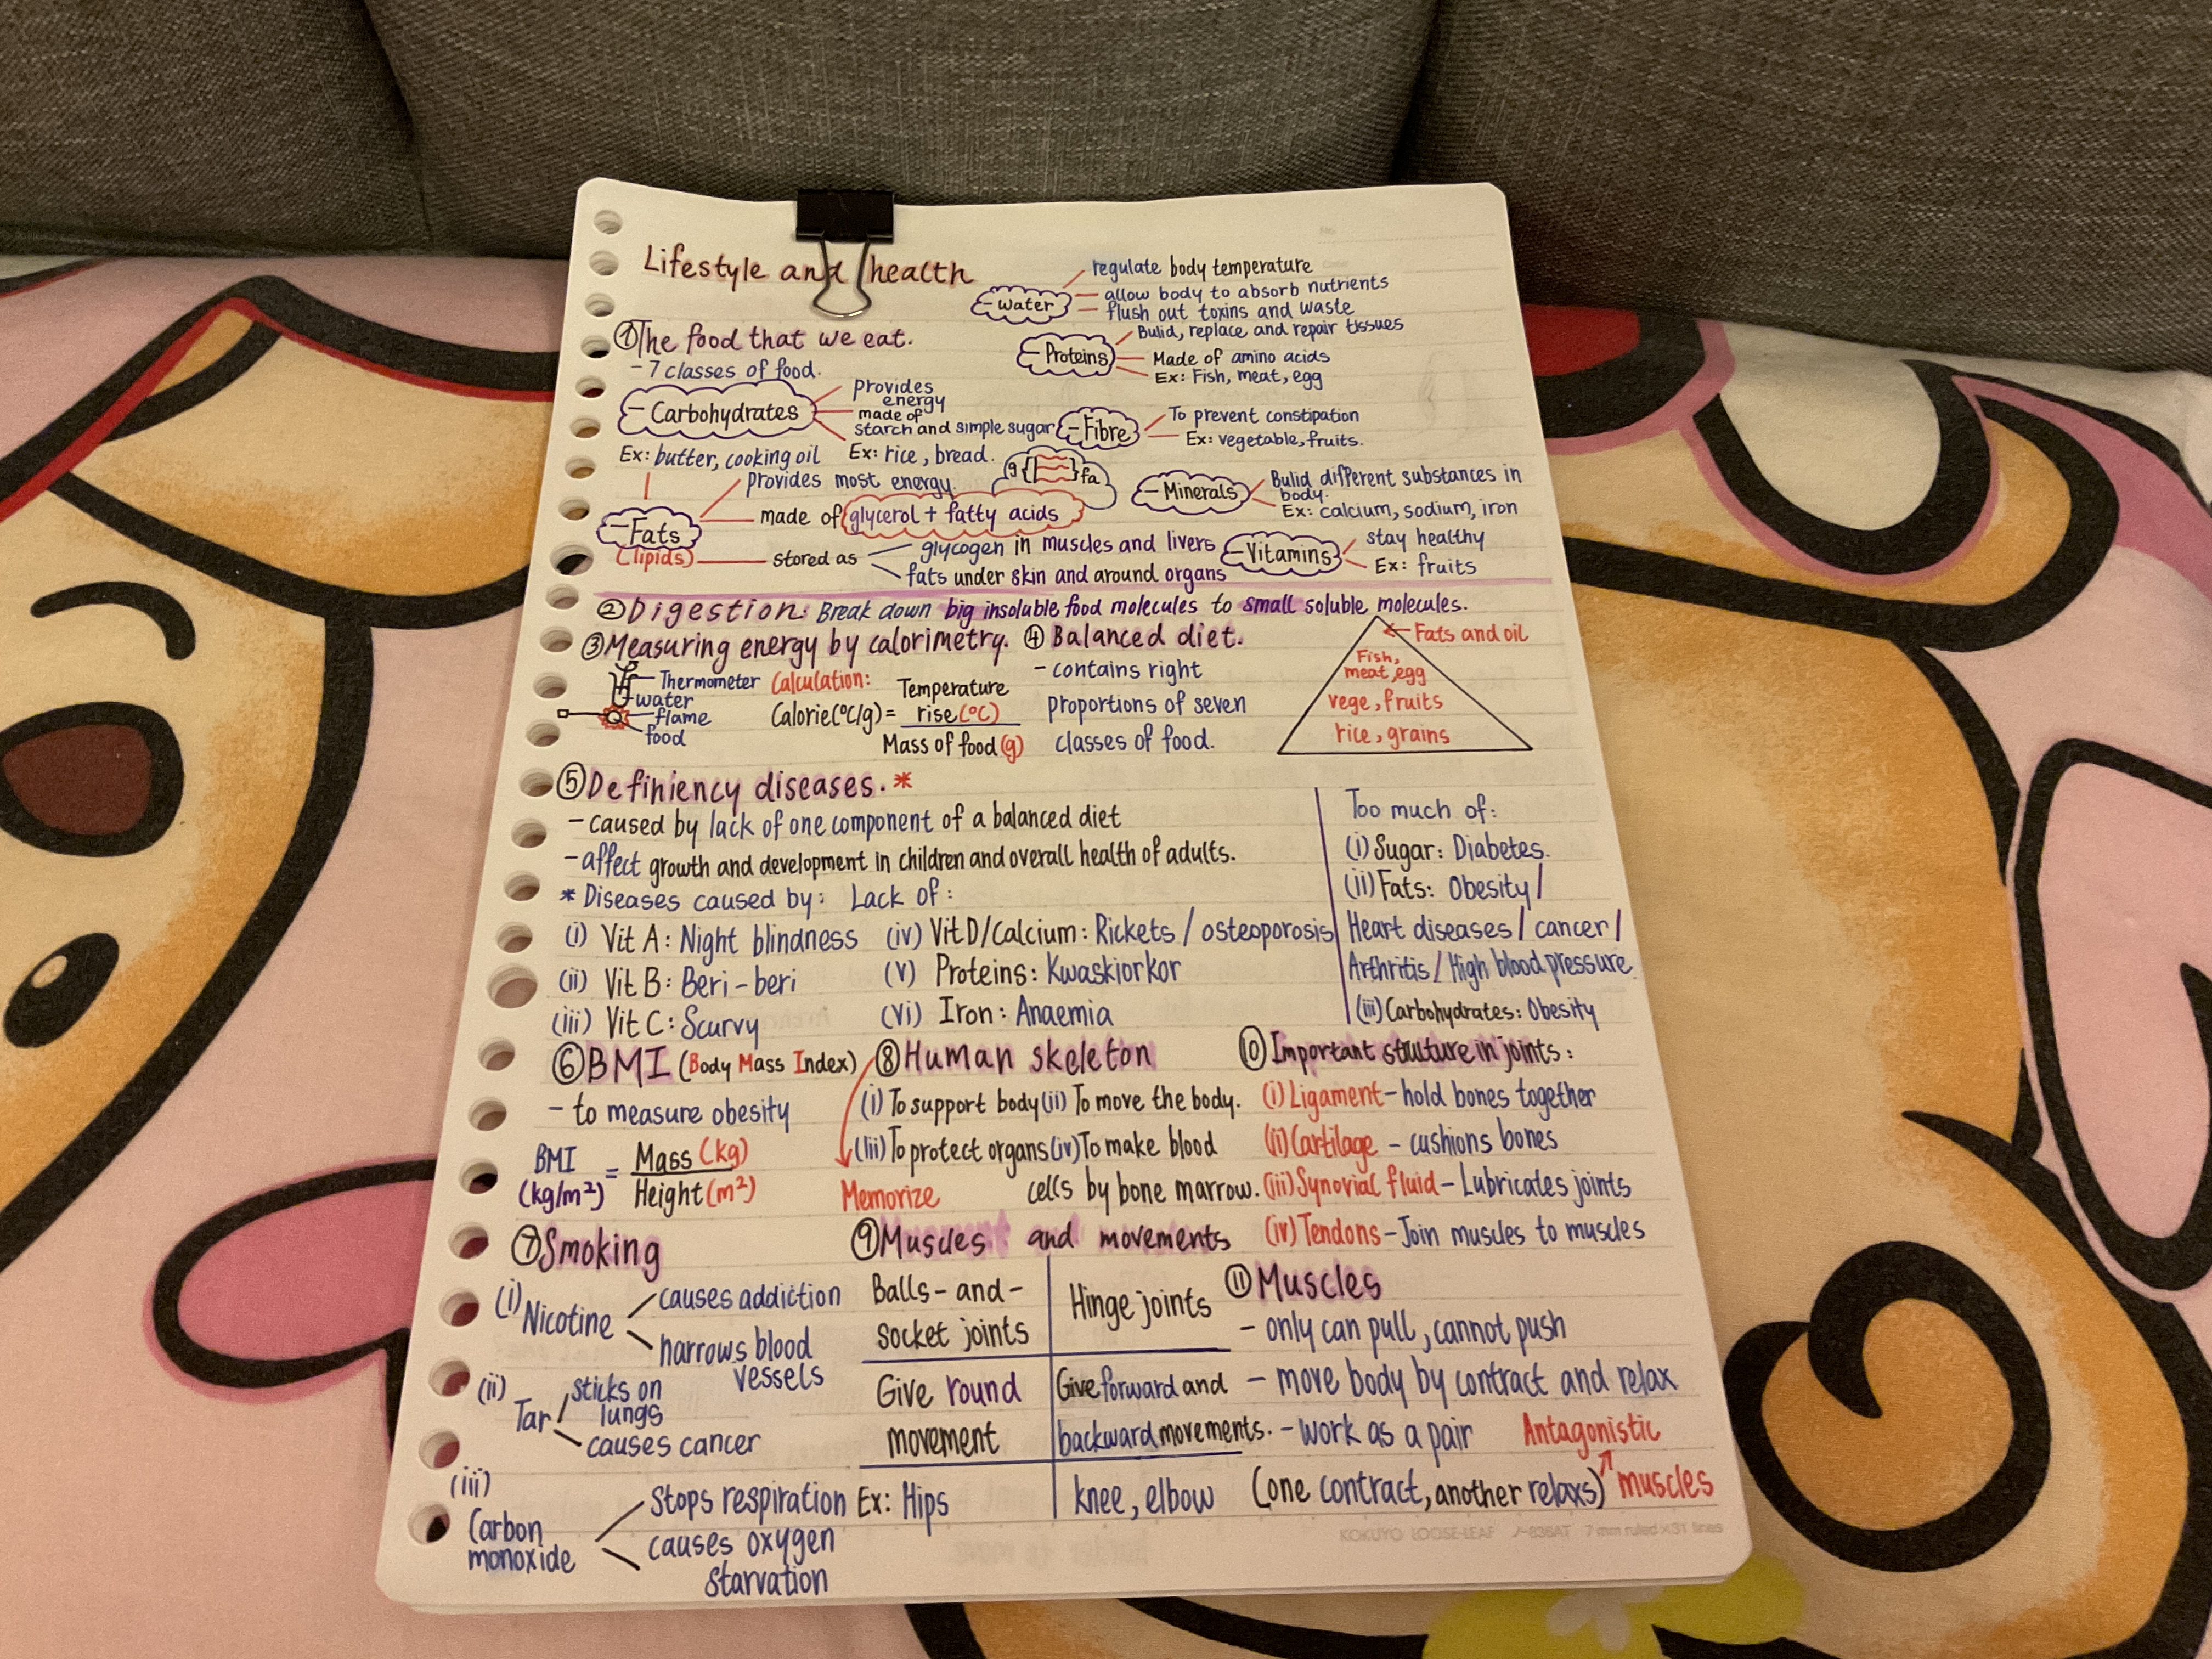 Lifestyle and health
① The food that we eat.
- 7 classes of food.
- Carbohydrates
provides
energy
made of
starch and simple sugar
Ex: rice, bread.
Ex: butter, cooking oil
- Fats
(lipids)
provides most energy.
made of glycerol + fatty acids
g{ }fa
stored as
glycogen in muscles and livers
fats under skin and around organs
- water
regulate body temperature
allow body to absorb nutrients
flush out toxins and waste
- Proteins
Bulid, replace and repair tissues
Made of amino acids
Ex: Fish, meat, egg
- Fibre
To prevent constipation
Ex: vegetable, fruits.
- Minerals
Bulid different substances in
body.
Ex: calcium, sodium, iron
- Vitamins
stay healthy
Ex: fruits
② Digestion: Break down big insoluble food molecules to small soluble molecules.
③ Measuring energy by calorimetry.
Thermometer
water
flame
food
Calculation:
Calorie(°C/g) = Temperature
rise(°C)
Mass of food (g)
④ Balanced diet.
- contains right
proportions of seven
classes of food.
Fats and oil
Fish,
meat, egg
vege, fruits
rice, grains
⑤ Definiency diseases. *
- caused by lack of one component of a balanced diet
- affect growth and development in children and overall health of adults.
* Diseases caused by: Lack of:
(i) Vit A: Night blindness
(ii) Vit B: Beri-beri
(iii) Vit C: Scurvy
(iv) Vit D/Calcium: Rickets / osteoporosis
(v) Proteins: Kwaskiorkor
(vi) Iron: Anaemia
Too much of:
(i) Sugar: Diabetes.
(ii) Fats: Obesity /
Heart diseases / cancer /
Arthritis / High blood pressure.
(iii) Carbohydrates: Obesity
⑥ BMI (Body Mass Index)
- to measure obesity
BMI
(kg/m²)
= Mass (kg)
Height (m²)
⑦ Smoking
(i) Nicotine
causes addiction
narrows blood
vessels
(ii) Tar
sticks on
lungs
causes cancer
(iii)
Carbon
monoxide
Stops respiration
causes oxygen
starvation
⑧ Human skeleton
(i) To support body (ii) To move the body.
(iii) To protect organs (iv) To make blood
cells by bone marrow.
Memorize
⑨ Muscles and movements
Balls-and-
socket joints
Hinge joints
Give round
movement
Give forward and
backward movements.
Ex: Hips
knee, elbow
⑩ Important strulture in joints:
(i) Ligament - hold bones together
(ii) Cartilage - cushions bones
(iii) Synovial fluid - Lubricates joints
(iv) Tendons - Join muscles to muscles
⑪ Muscles
- only can pull, cannot push
- move body by contract and relax
- work as a pair
(one contract, another relaxs)
Antagonistic
muscles
KOKUYO LOOSE-LEAF ノ-836AT 7 mm ruled × 31 lines